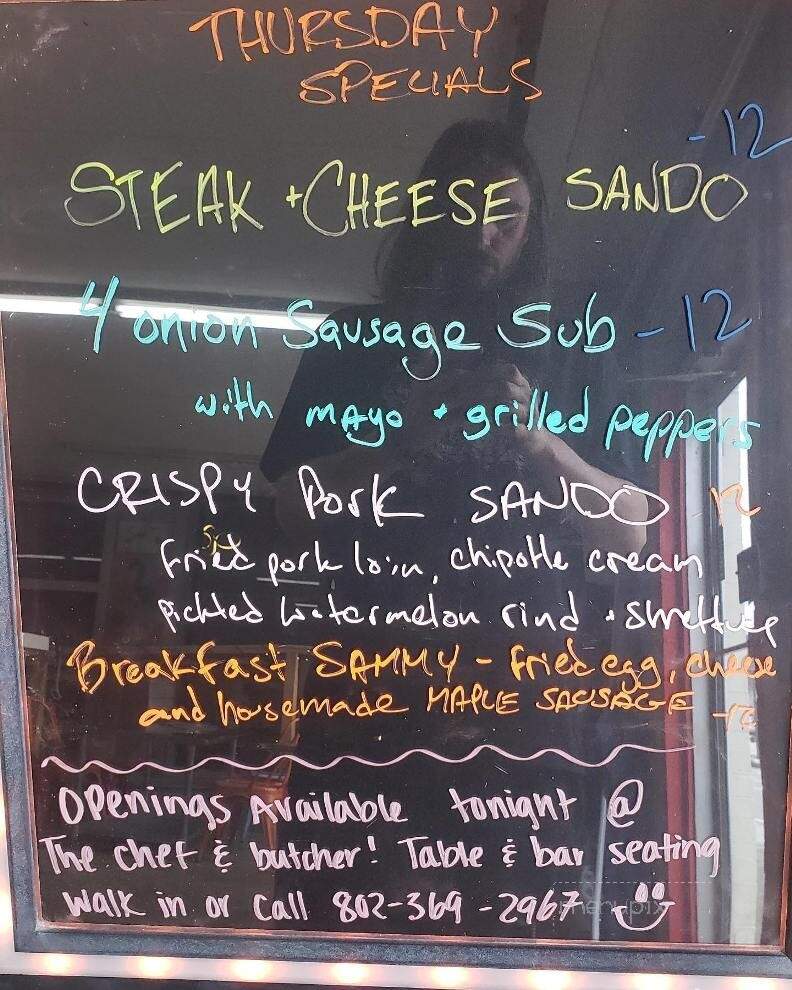 THURSDAY
SPECIALS
-12
STEAK + CHEESE SANDO
4 onion Sausage Sub - 12
with mayo + grilled peppers
CRISPY Pork SANDO - 12
fried pork loin, chipotle cream
pickled watermelon rind +
Breakfast SAMMY - fried egg, cheese
and housemade MAPLE SAUSAGE
Openings Available tonight @
The chef & butcher! Table & bar seating
Walk in or call 802-369-2967
menupix